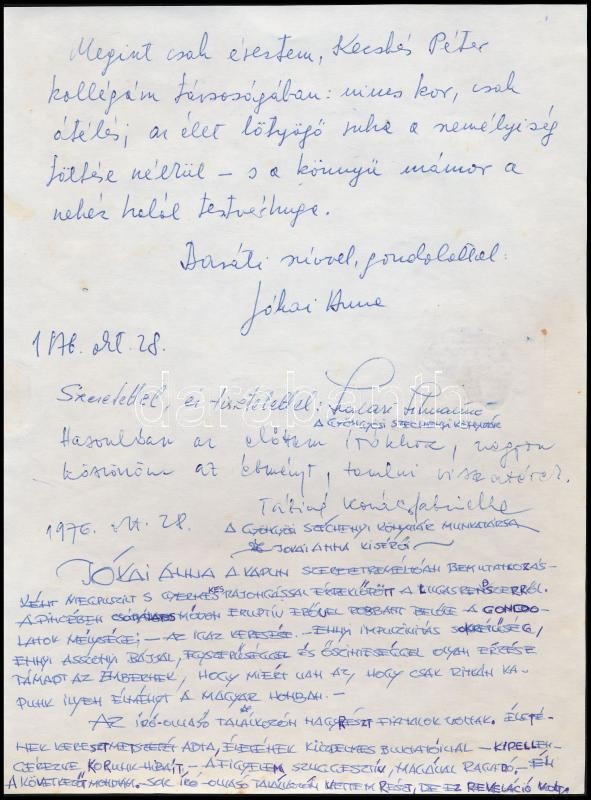 Megint csak éreztem, Kecskés Péter
kollégám társaságában: nincs kor, csak
átélés; az élet lötyögő ruha a személyiség
töltése nélkül – s a könnyű mámor a
nehéz halál testvérhuga.
Baráti szívvel, gondolattal:
Jókai Anna
1976. okt. 28.
Szeretettel, és tisztelettel:
A GYÖNGYÖSI SZÉCHENYI KÖNYVTÁR
Hasonlóan az előttem írókhoz, nagyon
köszönöm az élményt, tanulni visszatérek.
1976. okt. 28.
A GYÖNGYÖSI SZÉCHENYI KÖNYVTÁR MUNKATÁRSA
JÓKAI ANNA KISÉRŐI
JÓKAI ANNA A KAPUN SZERETETREMÉLTÓAN BEMUTATKOZÁS-
KÉNT MEGPUSZILT S GYERMEKES RAJONGÁSSAL A
A PINCÉBEN MÓDON ERUPTÍV ERŐVEL ROBBANT BELŐLE A GONDO-
LATOK MÉLYSÉGE; – AZ IGAZ KERESÉSE. – ENNYI IMPULZIVITÁS
ENNYI ASSZONYI BÁJJAL, EGYSZERŰSÉGGEL ÉS ŐSZINTESÉGGEL OLYAN ÉRZÉSE
TÁMADT AZ EMBERNEK, HOGY MIÉRT VAN AZ, HOGY CSAK RITKÁN KA-
PUNK ILYEN ÉLMÉNYT A MAGYAR HONBAN. –
AZ ÍRÓ-OLVASÓ TALÁLKOZÓN NAGYRÉSZT FIATALOK VOLTAK. ÉLETÉ-
NEK KERESZTMETSZETÉT ADTA, ÉLETÉNEK – KIPELLEN-
GÉREZVE KORUNK HIBÁIT. – A FIGYELEM SZUGGESZTÍV, MAGÁVAL RAGADÓ. – ÉN
A KÖVETKEZŐT MONDTAM. – SOK ÍRÓ-OLVASÓ TALÁLKOZÓN VETTEM RÉSZT, DE EZ REVELÁCIÓ VOLT
darabanth